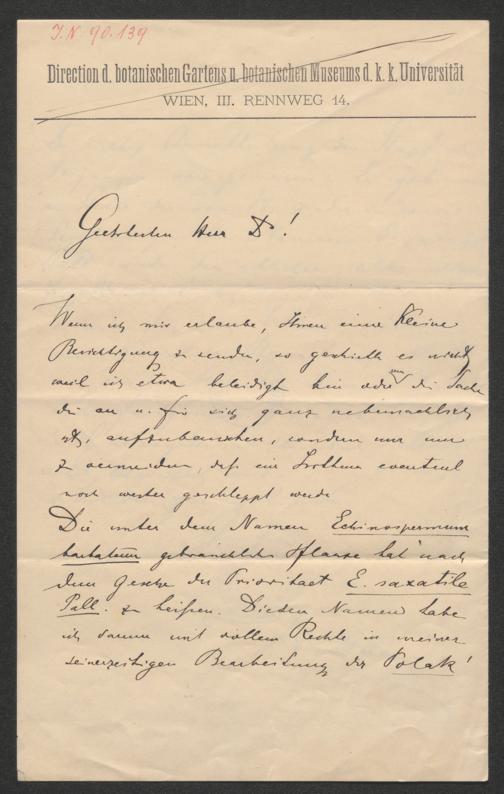 J. N. 90.139
Direction d. botanischen Gartens u. botanischen Museums d. k. k. Universität
WIEN, III. RENNWEG 14.
Geehrtester Herr Dr!
Wenn ich mir erlaube, Ihnen eine kleine
Berichtigung zu senden, so geschieht es nicht,
weil ich etwa beleidigt bin oder um die Sache
die an u. für sich ganz nebensächlich
ist, aufzubauschen, sondern nur um
zu vermeiden, daß ein Irrthum eventuel
noch weiter geschleppt werde
Die unter dem Namen Echinospermum
barbatum gebräuchliche Pflanze hat nach
dem Gesetze der Prioritaet E. saxatile
Pall. zu heißen. Diesen Namen habe
ich darum mit vollem Rechte in meiner
seinerzeitigen Bearbeitung der Polak'